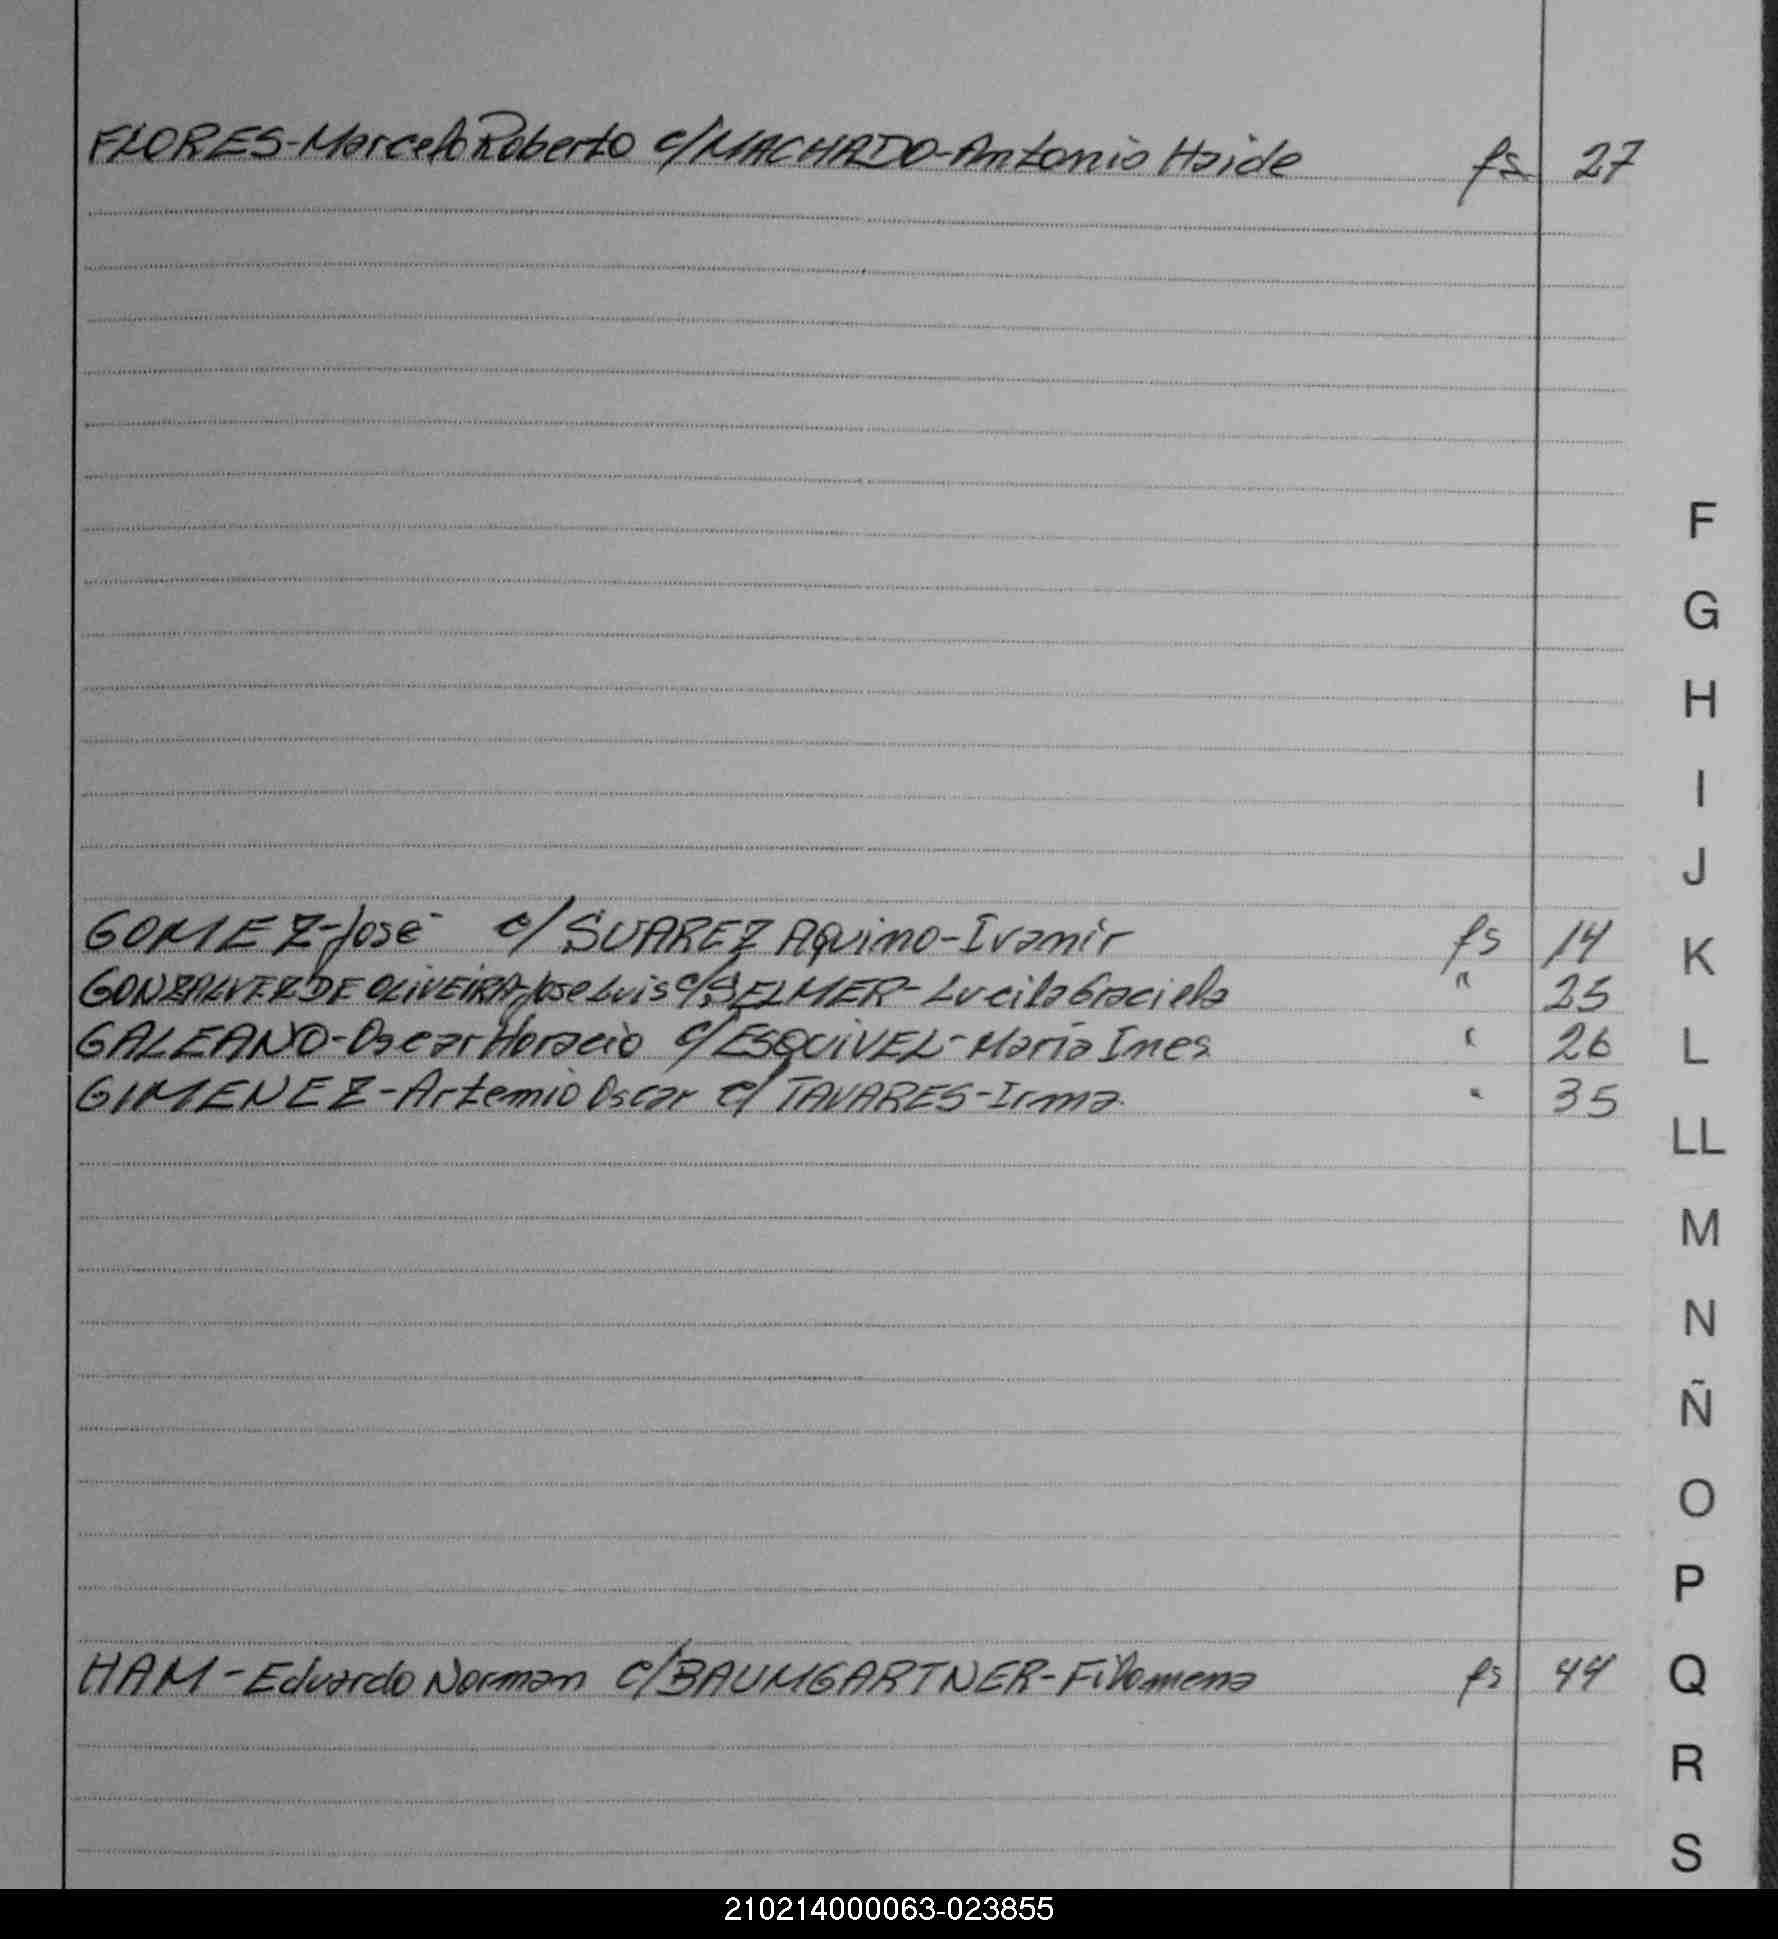 FLORES-Marcelo Roberto c/MACHADO-Antonia Haide fs 27
F
G
H
I
J
GOMEZ-José c/ SUAREZ Aquino-Ivamir fs 14
K
GONZALVEZ DE OLIVEIRA-Jose Luis c/SELMER-Lucila Graciela " 25
GALEANO-Oscar Horacio c/ESQUIVEL-María Ines " 26
L
GIMENEZ-Artemio Oscar c/ TAVARES-Irma " 35
LL
M
N
Ñ
O
P
HAM-Eduardo Norman c/BAUMGARTNER-Filomena fs 44
Q
R
S
210214000063-023855